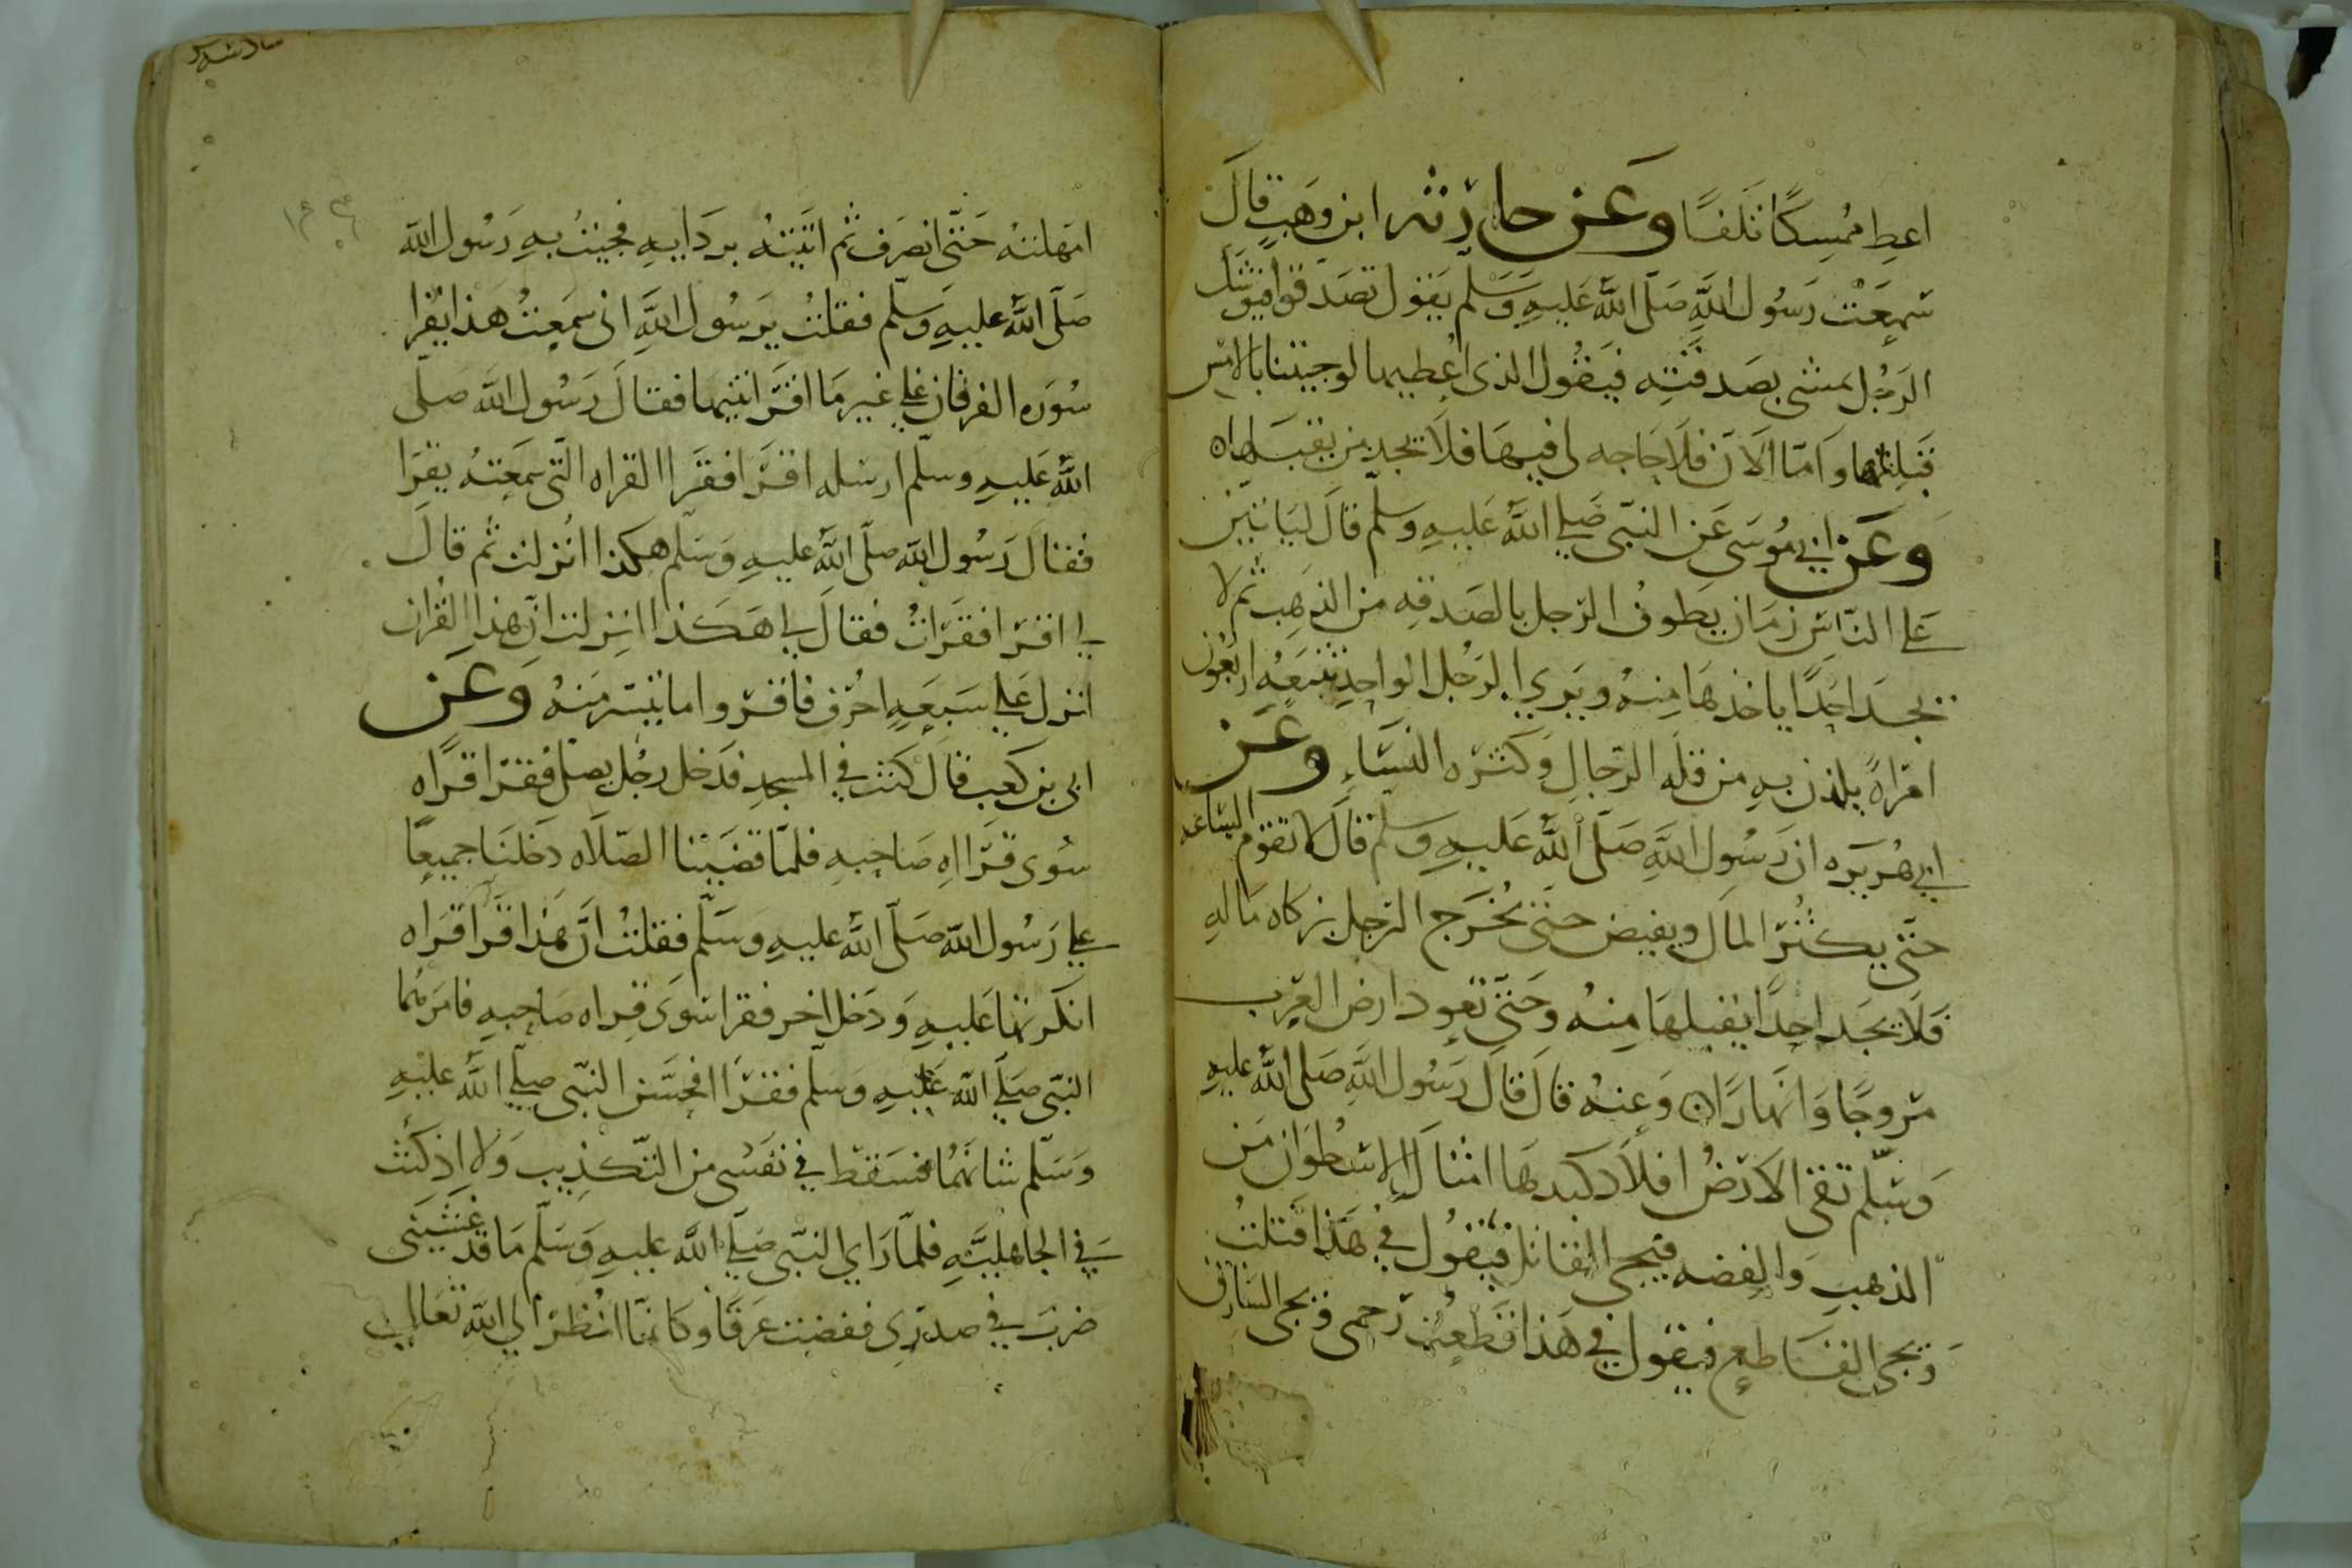 اعط ممسكا تلفا وعن حارثه ابن وهب قال
سمعت رسول الله صلى الله عليه وسلم يقول تصدقوا فيوشك
الرجل يمشي بصدقته فيقول الذي اعطيها لو جيتنا بالامس
قبلتها واما الان فلا حاجه لي فيها فلا يجد من يقبلها ه
وعن ابي موسى عن النبي صلي الله عليه وسلم قال لياتين
علي الناس زمان يطوف الرجل بالصدقه من الذهب ثم لا
يجد احدا ياخذها منه ويري الرجل الواحد تتبعه اربعون
امراة يلذن به من قله الرجال وكثره النساء وعن
ابي هريره ان رسول الله صلى الله عليه وسلم قال لا تقوم الساعه
حتى يكثر المال ويفيض حتى يخرج الرجل بزكاه ماله
فلا يجد احدا يقبلها منه وحتى تعود ارض العرب
مروجا وانهارا ن وعنه قال قال رسول الله صلى الله عليه
وسلم تقى الارض افلاد كبدها امثال الاسطوان من
الذهب والفضه فيجي القاتل فيقول في هذا قتلت
ويجي القاطع فيقول في هذا قطعت رحمي ويجي السارق
امهلته حتى انصرف ثم اتيته بردايه فجيت به رسول الله
صلى الله عليه وسلم فقلت يرسول الله انى سمعت هذا يقرا
سوره الفرقان علي غير ما اقراتنيها فقال رسول الله صلى
الله عليه وسلم ارسله اقرا فقرا القراه التى سمعته يقرا
فقال رسول الله صلى الله عليه وسلم هكذا انزلت ثم قال
لي اقرا فقرات فقال لي هكذا انزلت ان هذا القران
انزل علي سبعه احرف فاقروا ما تيسر منه وعن
ابى بن كعب قال كنت في المسجد فدخل رجل يصلى فقرا قراه
سوى قراه صاحبه فلما قضينا الصلاه دخلنا جميعا
علي رسول الله صلى الله عليه وسلم فقلت ان هذا قرا قراه
انكرتها عليه ودخل اخر فقرا سوى قراه صاحبه فامرهما
النبى صلي الله عليه وسلم فقرا فحسن النبى صلي الله عليه
وسلم شانهما فسقط في نفسى من التكذيب ولا اذ كنت
في الجاهليه فلما راي النبى صلي الله عليه وسلم ما قد غشينى
ضرب في صدري ففضت عرقا وكانما انظر الي الله تعالي